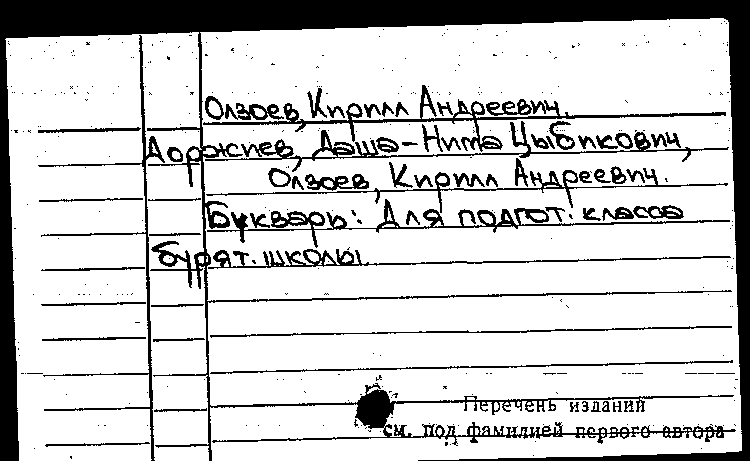 Олзоев, Кирилл Андреевич.
Доржиев, Даша-Нима Цыбикович,
Олзоев, Кирилл Андреевич.
Букварь: Для подгот. класса
бурят. школы.
Перечень изданий
см. под фамилией первого автора